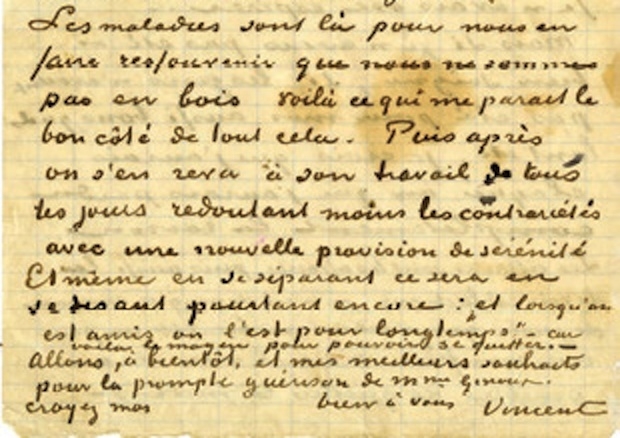 Les maladies sont là pour nous en
faire ressouvenir que nous ne sommes
pas en bois voilà ce qui me parait le
bon côté de tout cela. Puis après
on s'en reva à son travail de tous
les jours redoutant moins les contrariétés
avec une nouvelle provision de sérénité
Et même en se séparant ce sera en
se disant pourtant encore: "et lorsqu'on
est amis on l'est pour longtemps" - car
voilà le moyen pour pouvoir se quitter. -
Allons, à bientôt, et mes meilleurs souhaits
pour la prompte guérison de mme Ginoux.
croyez moi bien à vous Vincent